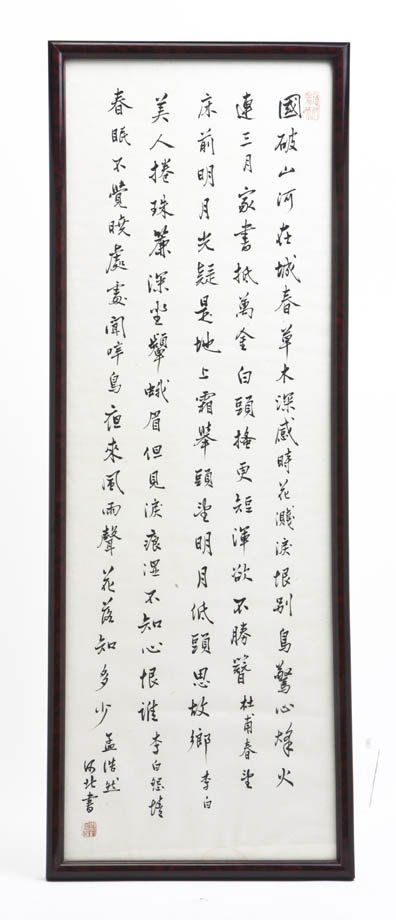 國破山河在城春草木深感時花濺淚恨別鳥驚心烽火
連三月家書抵萬金白頭搔更短渾欲不勝簪 杜甫春望
床前明月光疑是地上霜舉頭望明月低頭思故鄉 李白
美人捲珠簾深坐顰蛾眉但見淚痕濕不知心恨誰 李白怨情
春眠不覺曉處處聞啼鳥夜來風雨聲花落知多少 孟浩然
河北書